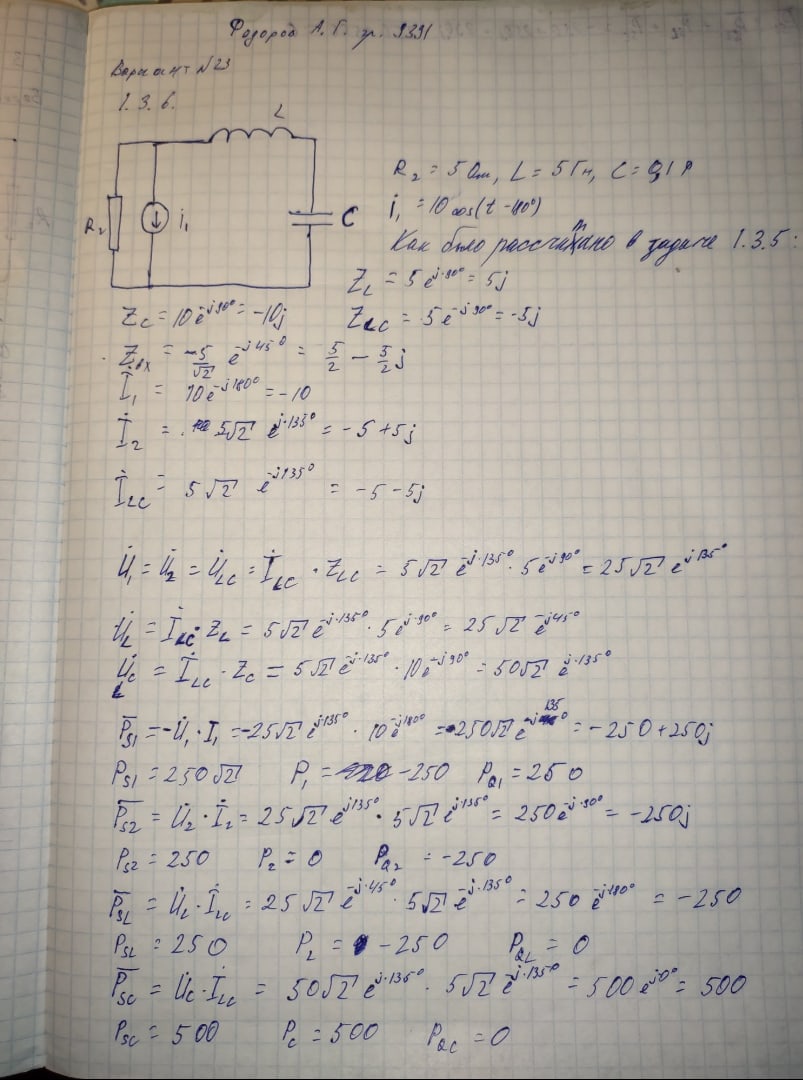 Федоров А. Г. гр. 9391
Вариант №23
1.3.6.
L
R₂
i₁
C
R₂ = 5 Ом, L = 5 Гн, C = 0,1 Ф
i₁ = 10 cos(t - 180°)
Как было рассчитано в задаче 1.3.5:
Z_L = 5e^{j·90°} = 5j
Z_C = 10e^{-j90°} = -10j
Z_LC = 5e^{-j90°} = -5j
Z_вх = 5/√2 e^{-j45°} = 5/2 - 5/2 j
İ₁ = 10e^{-j180°} = -10
İ₂ = 5√2 e^{j·135°} = -5+5j
İ_LC = 5√2 e^{-j135°} = -5-5j
U̇₁ = U̇₂ = U̇_LC = İ_LC · Z_LC = 5√2 e^{-j·135°} · 5e^{-j90°} = 25√2 e^{j135°}
U̇_L = İ_LC · Z_L = 5√2 e^{-j·135°} · 5e^{j·90°} = 25√2 e^{-j45°}
U̇_C = İ_LC · Z_C = 5√2 e^{-j·135°} · 10e^{-j90°} = 50√2 e^{j·135°}
P̅_S1 = -U̇₁ · I₁ = -25√2 e^{j·135°} · 10e^{-j180°} = 250√2 e^{j135°} = -250+250j
P_S1 = 250√2 P₁ = -250 P_Q1 = 250
P̅_S2 = U̇₂ · İ₂ = 25√2 e^{j135°} · 5√2 e^{j·135°} = 250e^{-j·90°} = -250j
P_S2 = 250 P₂ = 0 P_Q2 = -250
P̅_SL = U̇_L · İ_LC = 25√2 e^{-j·45°} · 5√2 e^{-j·135°} = 250e^{-j·180°} = -250
P_SL = 250 P_L = -250 P_QL = 0
P̅_SC = U̇_C · İ_LC = 50√2 e^{j·135°} · 5√2 e^{-j·135°} = 500e^{j0°} = 500
P_SC = 500 P_C = 500 P_QC = 0